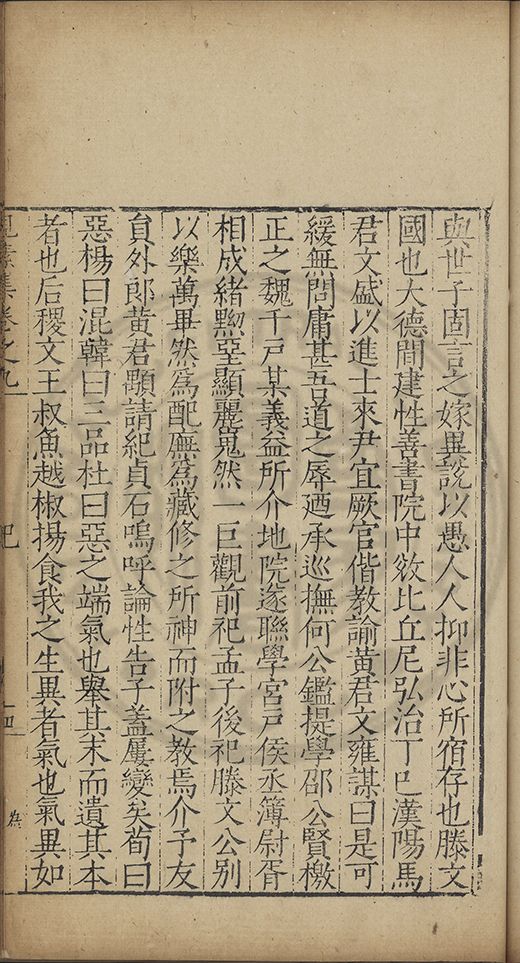 與世子固言之嫁異說以愚人人抑非心所宿存也滕文
國也大德間建性善書院中敓比丘尼弘治丁巳漢陽馬
君文盛以進士來尹宜厥官偕教諭黃君文雍謀曰是可
緩無問庸甚吾道之辱廼承巡撫何公鑑提學邵公賢檄
正之魏千戶某義益所介地院遂聯學宮戶侯丞簿尉胥
相成緒黝堊顯麗嵬然一巨觀前祀孟子後祀滕文公別
以樂萬畢然為配廡為藏修之所神而附之教焉介予友
貟外郎黃君顯請紀貞石嗚呼論性告子蓋屢變矣荀曰
惡楊曰混韓曰三品杜曰惡之端氣也舉其末而遺其本
者也后稷文王叔魚越椒揚食我之生異者氣也氣異如
見素集卷之九 記 四